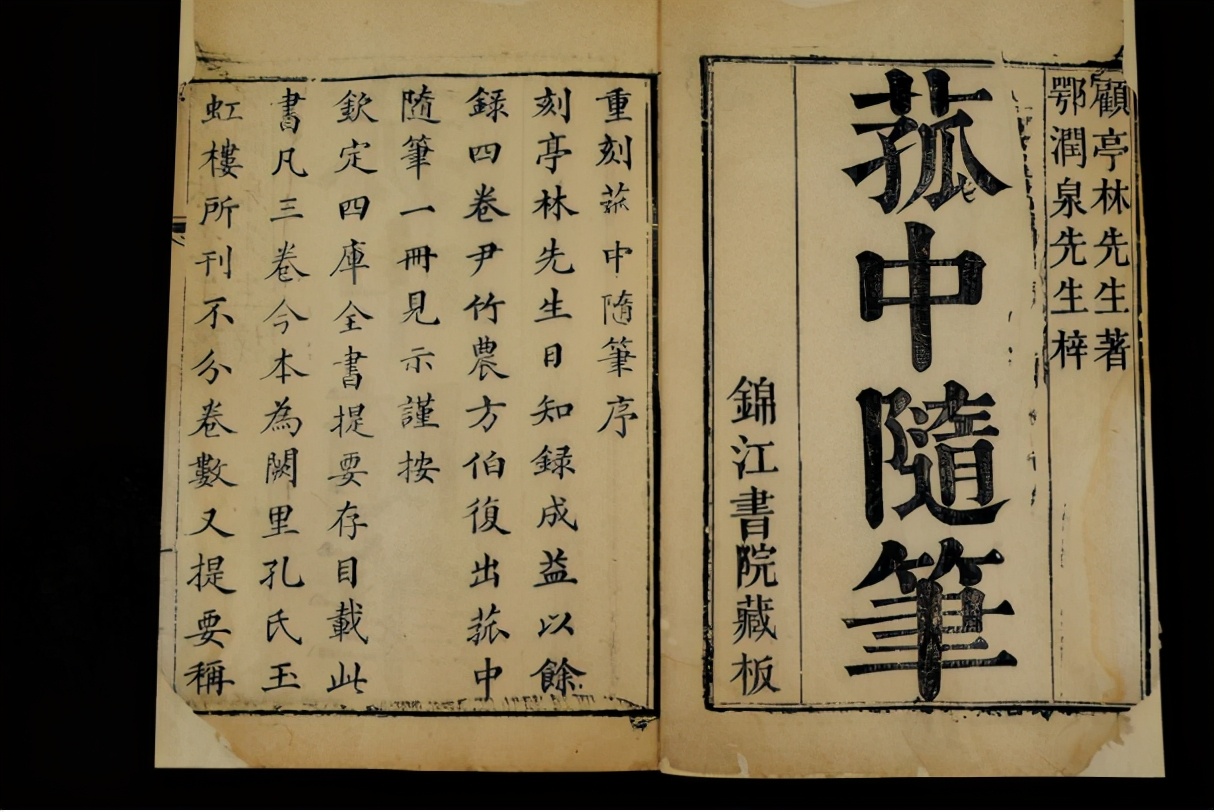 顧亭林先生著
鄂潤泉先生梓
菰中隨筆
錦江書院藏板
重刻菰中隨筆序
刻亭林先生日知録成益以餘
録四卷尹竹農方伯復出菰中
隨筆一冊見示謹按
欽定四庫全書提要存目載此
書凡三卷今本為闕里孔氏玉
虹樓所刊不分卷數又提要稱